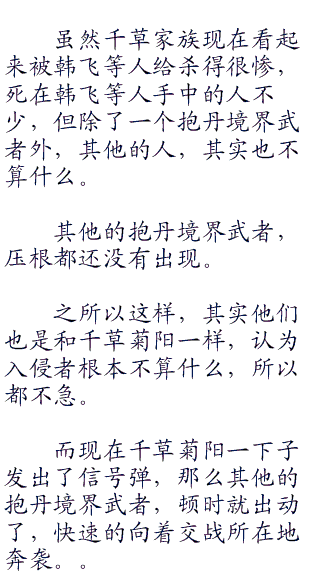 虽然千草家族现在看起
来被韩飞等人给杀得很惨，
死在韩飞等人手中的人不
少，但除了一个抱丹境界武
者外，其他的人，其实也不
算什么。
其他的抱丹境界武者，
压根都还没有出现。
之所以这样，其实他们
也是和千草菊阳一样，认为
入侵者根本不算什么，所以
都不急。
而现在千草菊阳一下子
发出了信号弹，那么其他的
抱丹境界武者，顿时就出动
了，快速的向着交战所在地
奔袭。。